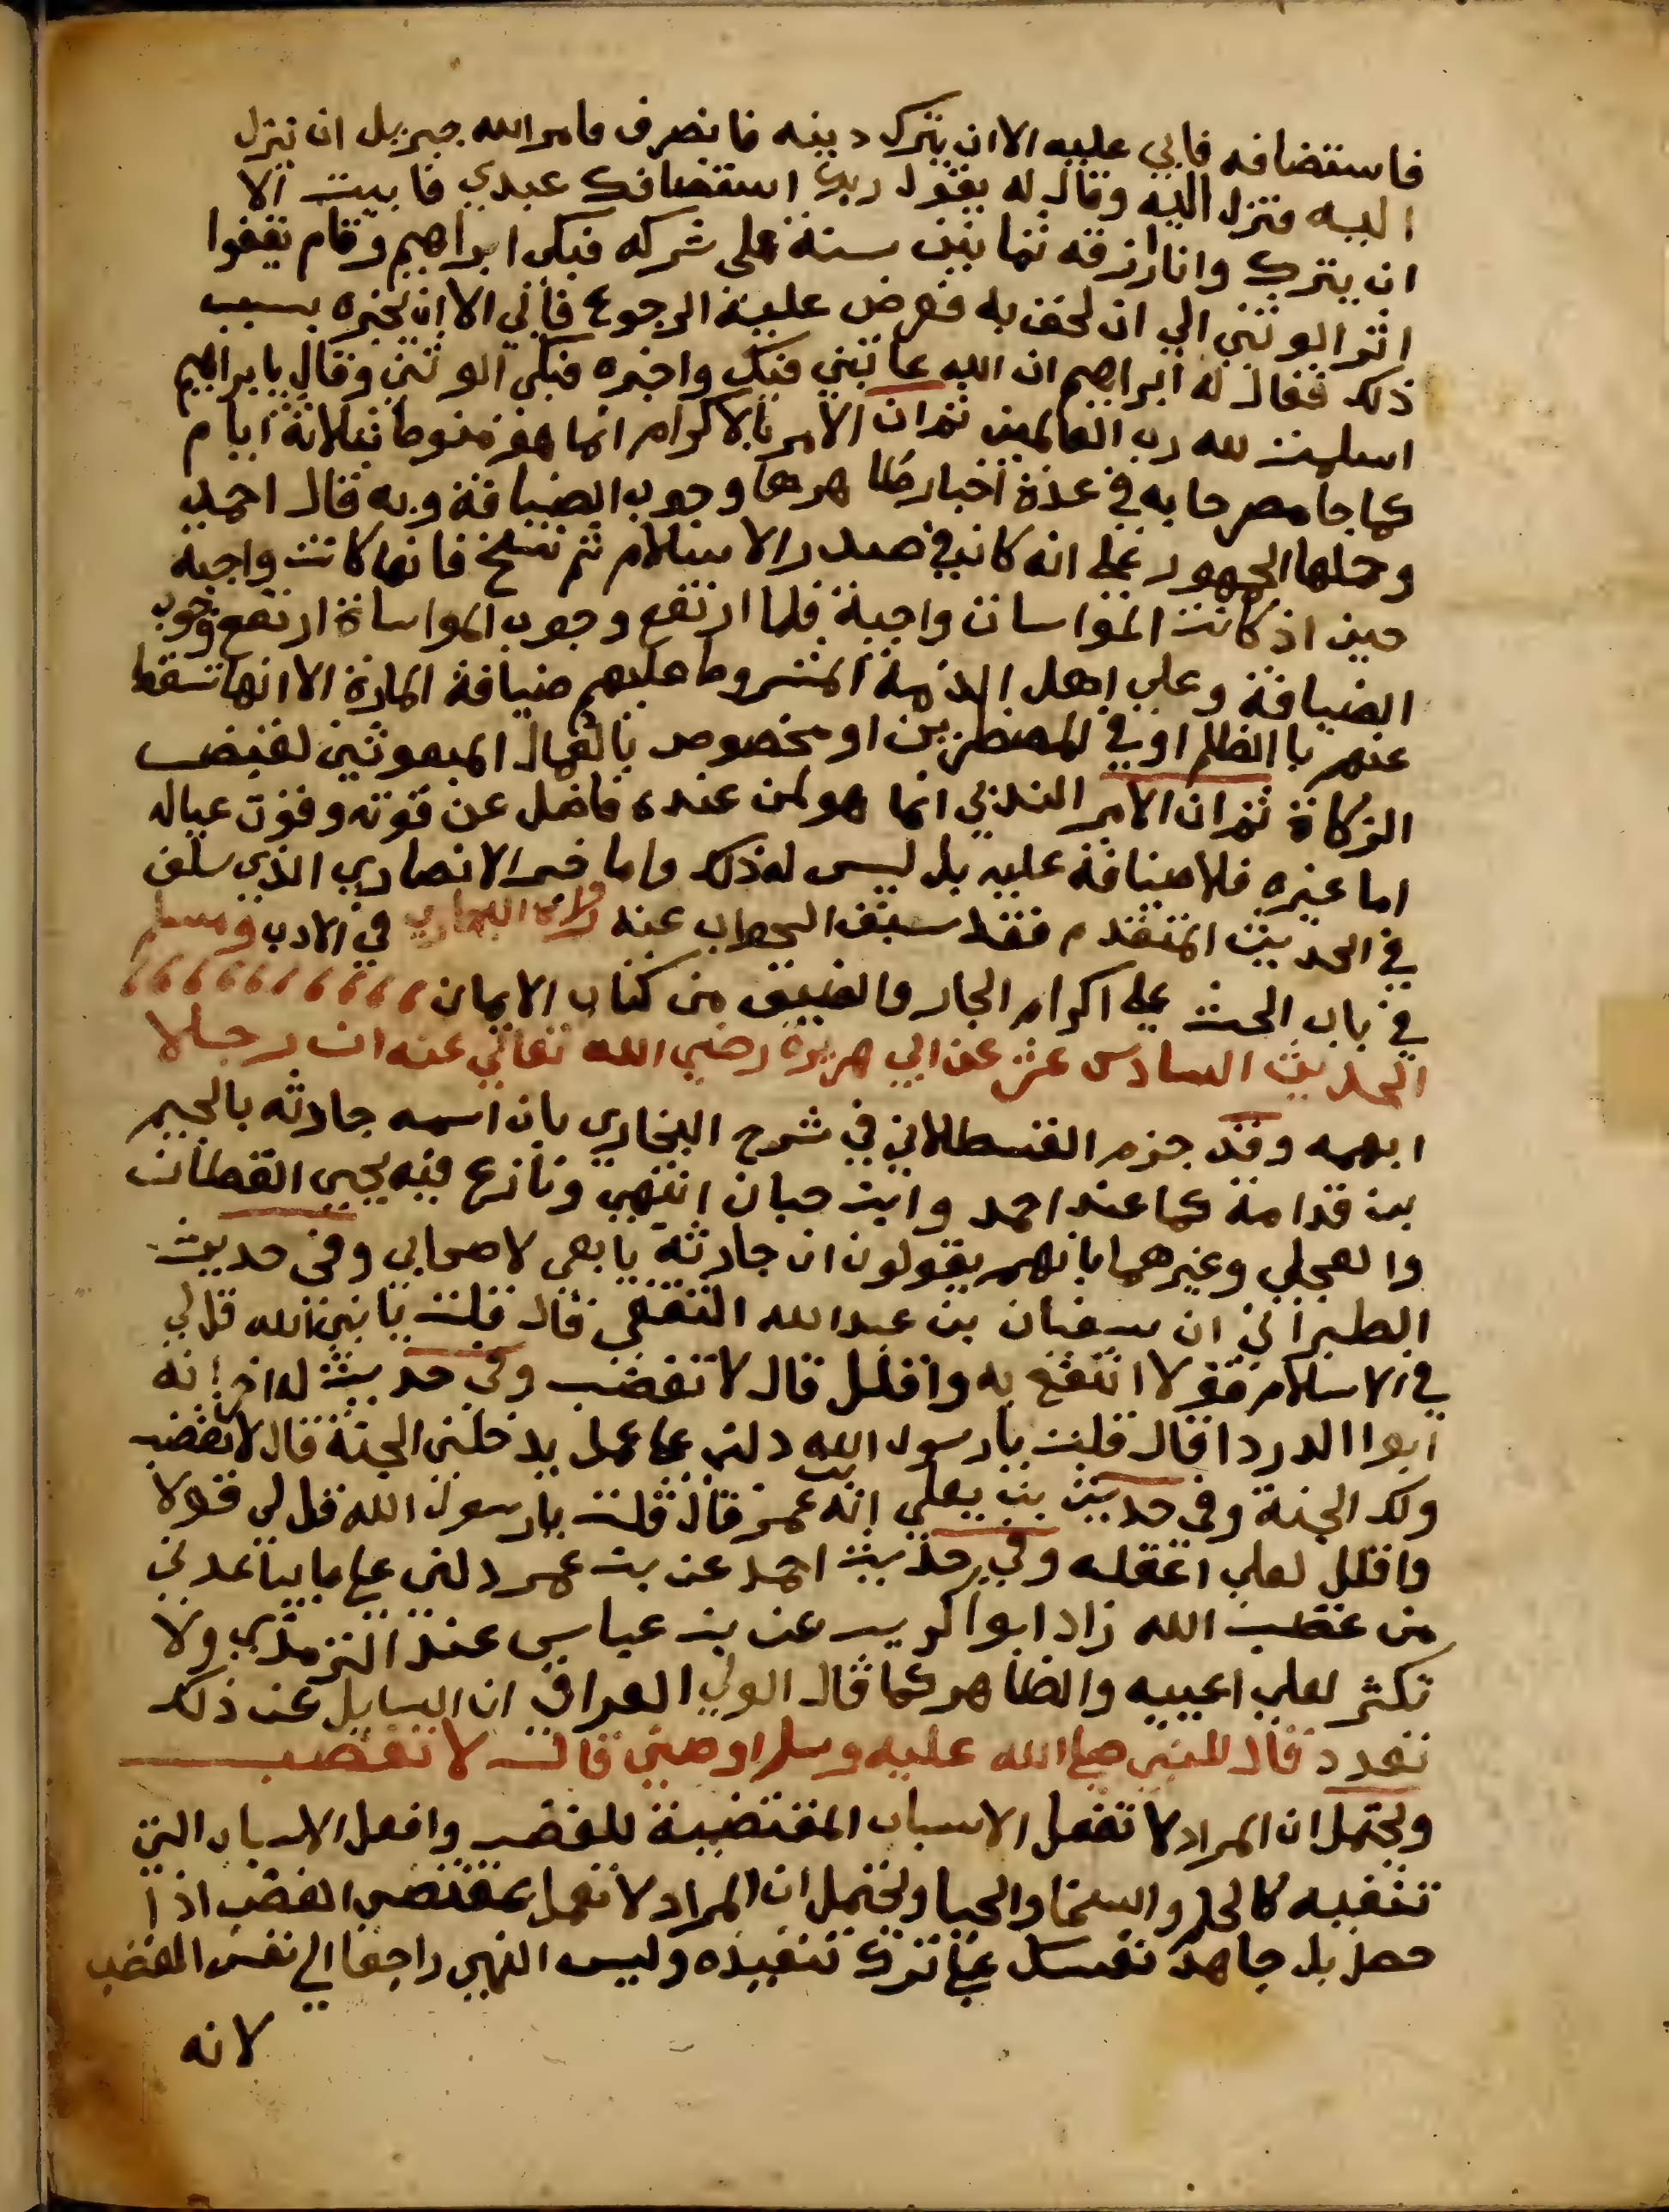 فاستضافه فابي عليه الا ان يترك دينه فانصرف فامر الله جبريل ان ينزل
اليه فنزل اليه وقال له يقول ربك استضافك عبدي فابيت الا
ان يترك وانا ارزقه ثمانين سنة على شركه فبكى ابراهيم وقام يقفوا
اثر الوثني الي ان لحق به فعرض عليه الرجوع فابي الا ان يخبره بسبب
ذلك فقال له ابراهيم ان الله عاتبني فيك واخبره فبكى الوثني وقال يا براهيم
اسلمت لله رب العالمين ثم ان الامر بالاكرام انما هو منوط بثلاثة ايام
كما جا مصرحا به في عدة اخبار ظاهرها وجوب الضيافة وبه قال احمد
وحملها الجمهور على انه كان في صدر الاسلام ثم نسخ فانها كانت واجبة
حين اذ كانت المواسات واجبة فلما ارتفع وجوب المواساة ارتفع وجوب
الضيافة وعلي اهل الذمة المشروط عليهم ضيافة المارة الا انها تسقط
عنهم باالظلم او في المضطرين او مخصوص بالعمال المبعوثين لقبض
الزكاة ثم ان الامر الندبي انما هو لمن عنده فاضل عن قوته وقوت عياله
اما غيره فلا ضيافة عليه بل ليس له ذلك واما خبر الانصاري الذي سلف
في الحديث المتقدم فقد سبق الجواب عنه رواه البخاري في الادب ومسلم
في باب الحث على اكرام الجار والضيف من كتاب الايمان
الحديث السادس عشر عن ابي هريرة رضي الله تعالي عنه ان رجلا
ابهمه وقد جزم القسطلاني في شرح البخاري بان اسمه جارثه بالجيم
بن قدامة كما عند احمد وابن حبان انتهي ونازع فيه يحيي القطان
والعجلي وغيرهما بانهم يقولون ان جارثة تابعي لا صحابي وفي حديث
الطبراني ان سفيان بن عبدالله الثقفي قال قلت يا نبي الله قل لي
في الاسلام قولا انتفع به واقلل قال لا تغضب وفي حديث له اخر انه
ابوا الدردا قال قلت يا رسول الله دلني على عمل يدخلني الجنة قال لا تغضب
ولك الجنة وفي حديث بن يعلي انه بن عمر قال قلت يا رسول الله قل لي قولا
واقلل لعلي اعقله وفي حديث احمد عن بن عمر دلني على ما يباعدني
من غضب الله زاد ابوا كريب عن بن عباس عند الترمذي ولا
تكثر لعلي اعييه والظاهر كما قال الولي العراقي ان السايل عن ذلك
تعدد قال للنبي صلى الله عليه وسلم اوصني قال لا تغضب
ويحتمل ان المراد لا تفعل الاسباب المقتضية للغضب وافعل الاسباب التي
تنفيه كالحلم والسخا والحيا ويحتمل ان المراد لا تعمل بمقتضي الغضب اذا
حصل بل جاهد نفسك على ترك تنفيذه وليس النهي راجعا الي نفس الغضب
لانه